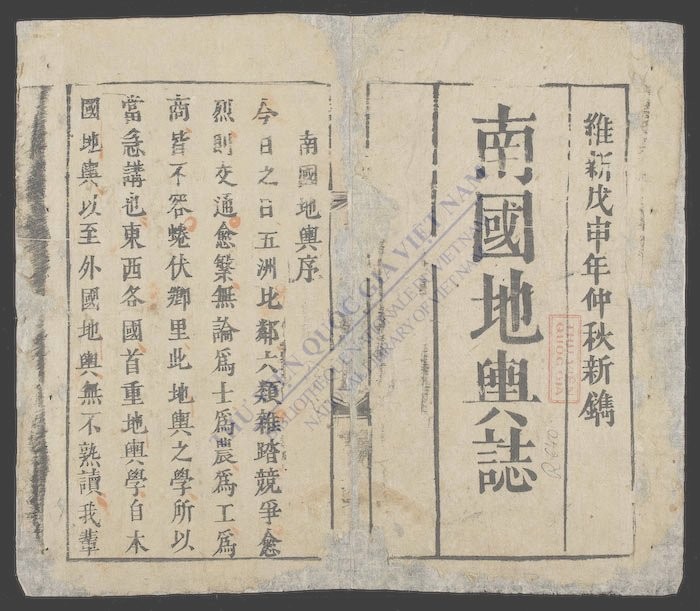 維新戊申年仲秋新鐫
南國地輿誌
南國地輿序
今日之日五洲比鄰六類雜踏競爭愈
烈則交通愈繁無論為士為農為工為
商皆不容蜷伏鄉里此地輿之學所以
當急講也東西各國首重地輿學自本
國地輿以至外國地輿無不熟讀我輩
THƯ VIỆN QUỐC GIA VIỆT NAM
BIBLIOTHÈQUE NATIONALE DU VIETNAM
NATIONAL LIBRARY OF VIETNAM